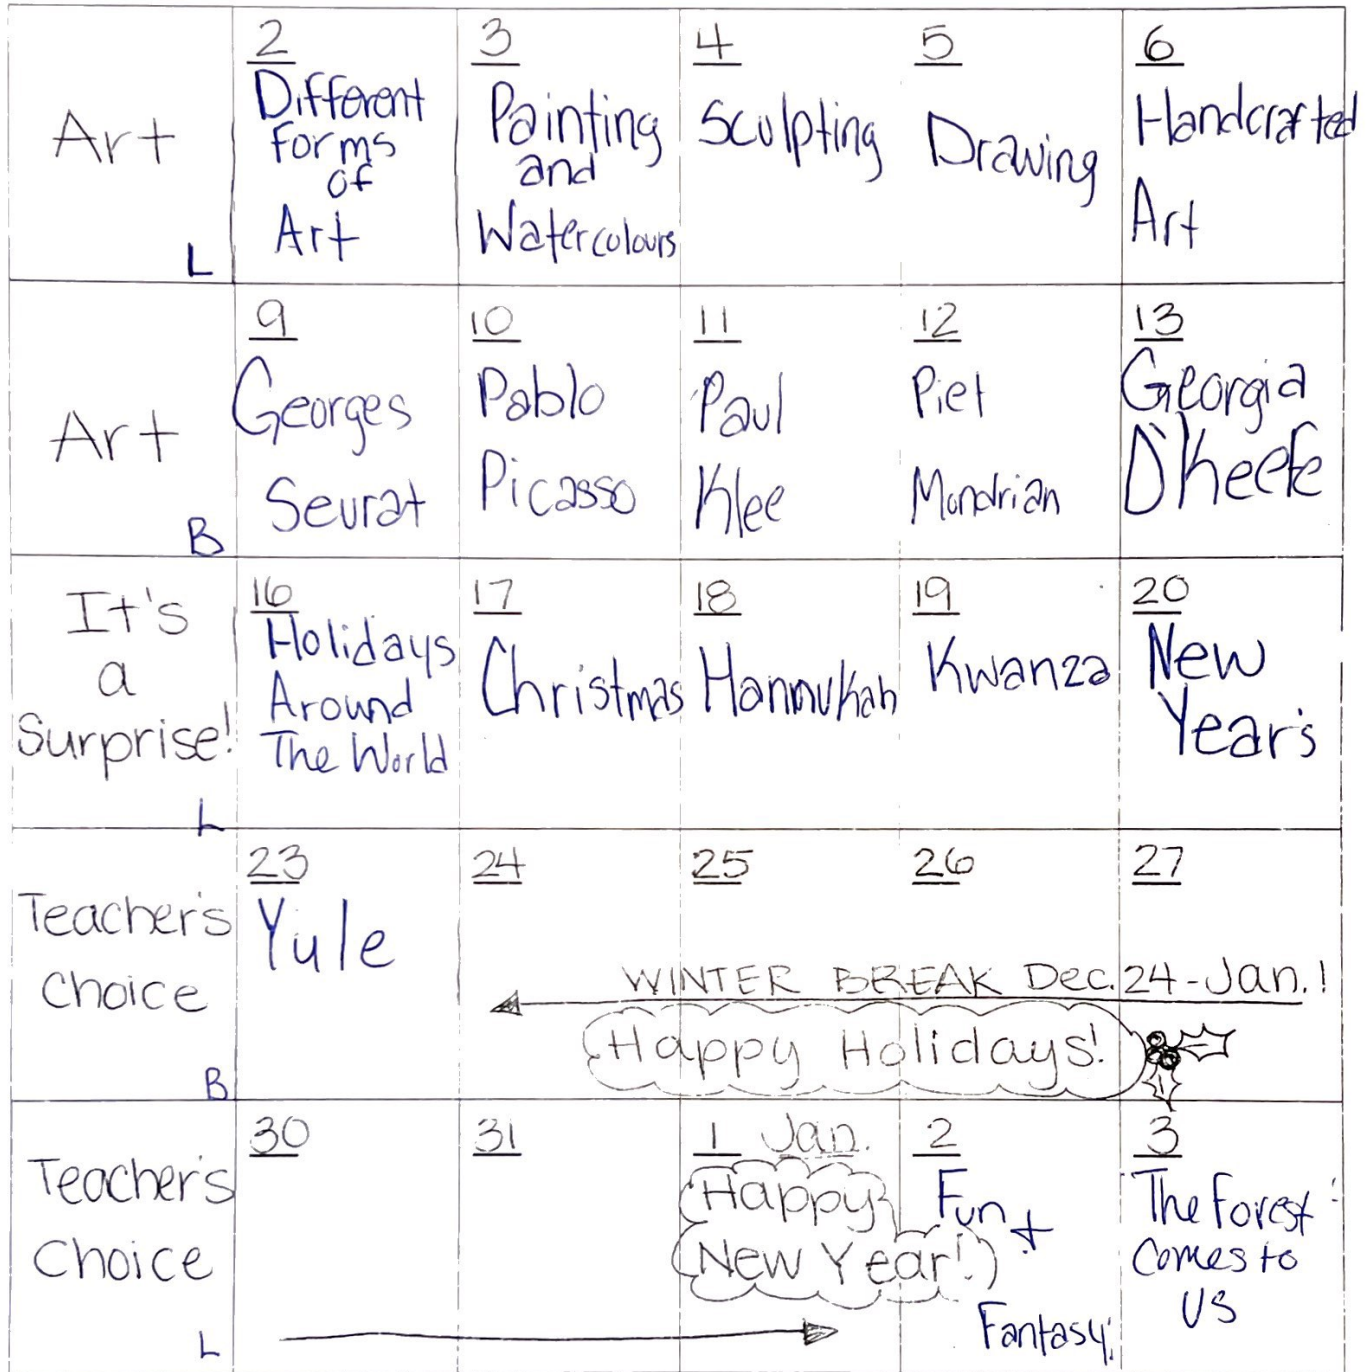 Art
L
2
Different
forms
of
Art
3
Painting
and
Watercolours
4
Sculpting
5
Drawing
6
Handcrafted
Art
Art
B
9
Georges
Seurat
10
Pablo
Picasso
11
Paul
Klee
12
Piet
Mondrian
13
Georgia
O'Keefe
It's
a
Surprise!
L
16
Holidays
Around
The World
17
Christmas
18
Hannukah
19
Kwanza
20
New
Year's
Teacher's
Choice
B
23
Yule
24
25
26
27
WINTER BREAK Dec. 24 - Jan. 1
Happy Holidays!
Teacher's
Choice
L
30
31
1 Jan.
Happy
New Year!
2
Fun +
Fantasy
3
The Forest
Comes to
US